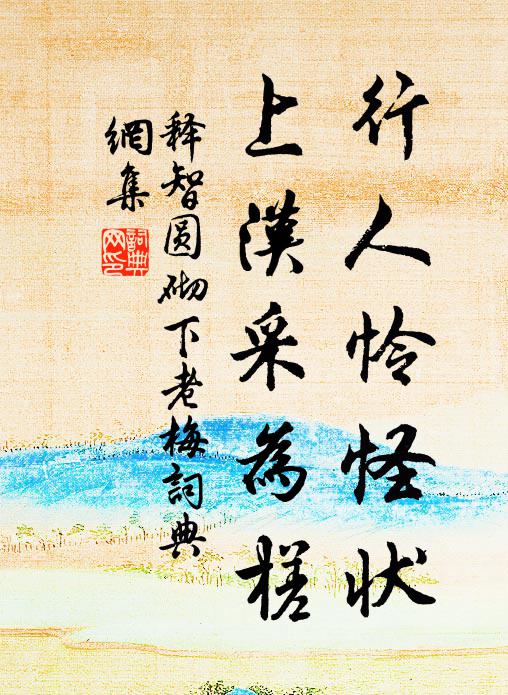 行人怜怪状
上汉采为槎
释智圆砌下老梅词典
網集
詞典
网印